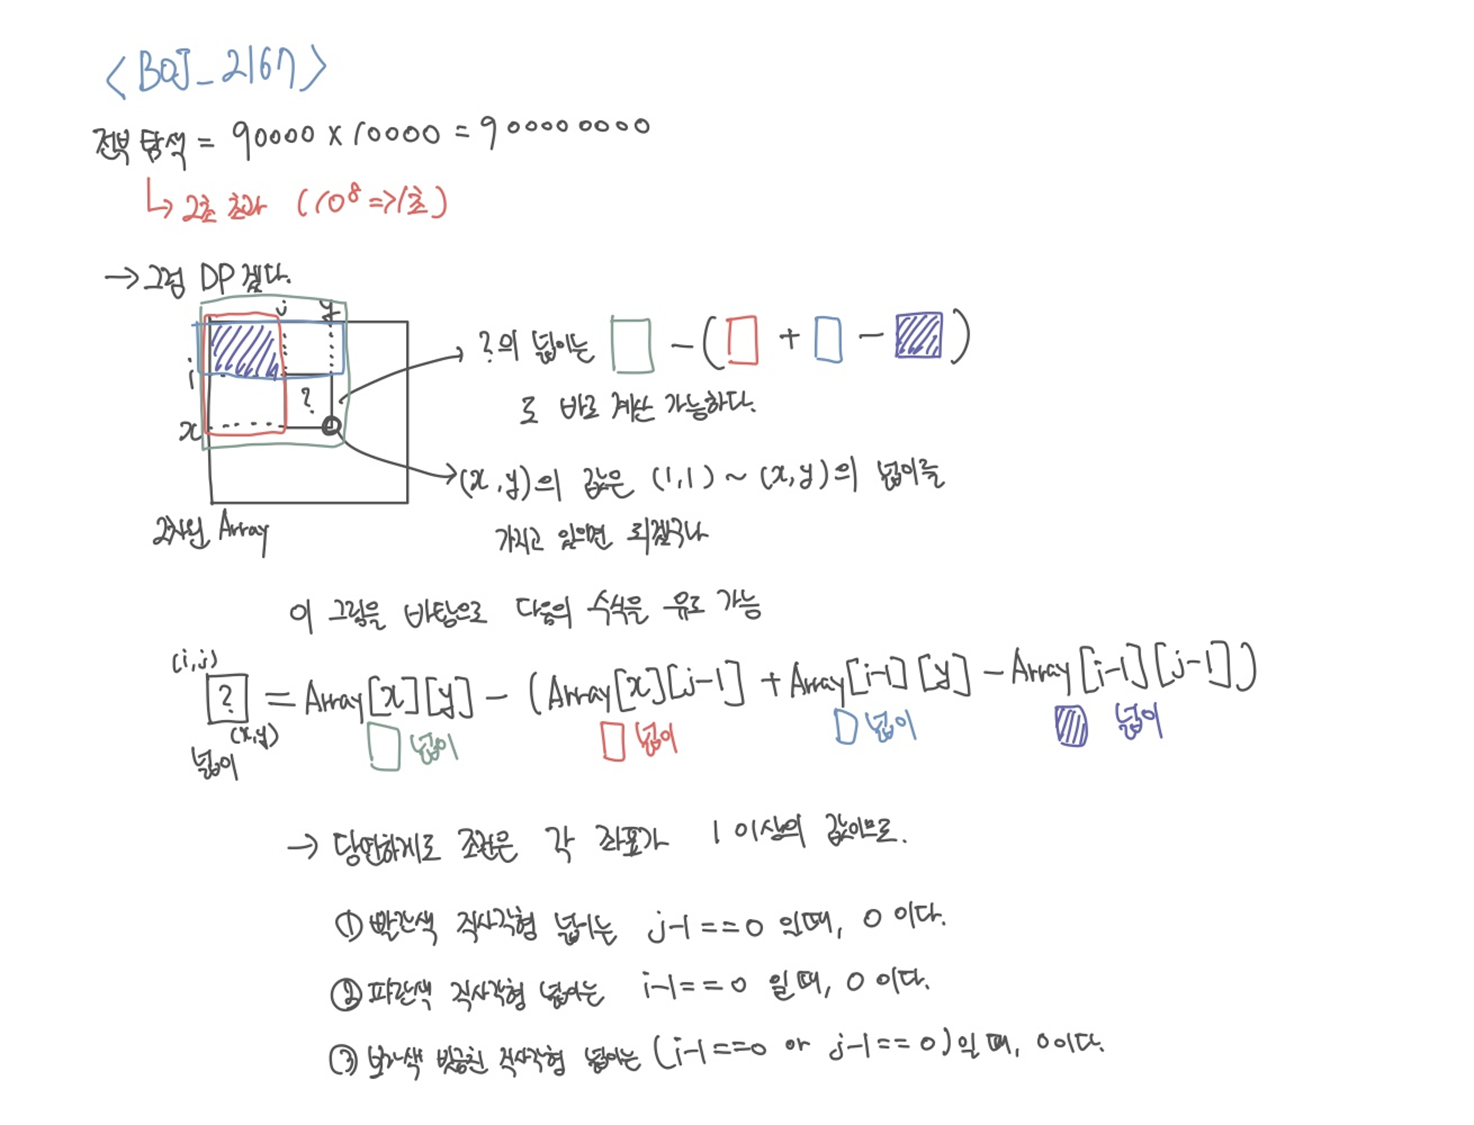 <BOJ_2167>
전부 탐색 = 90000 x 10000 = 900000000
↳ 2초 초과 (10⁸ => 1초)
→ 그럼 DP겠다.
j y
i
?
x
2차원 Array
?의 넓이는 □ - (□ + □ - □)
로 바로 계산 가능하다.
(x,y)의 값은 (1,1) ~ (x,y)의 넓이를
가지고 있으면 되겠구나
이 그림을 바탕으로 다음의 수식을 유도 가능
(i,j)
? = Array[x][y] - (Array[x][j-1] + Array[i-1][y] - Array[i-1][j-1])
(x,y)
넓이
□ 넓이 □ 넓이 □ 넓이 □ 넓이
→ 당연하게도 조건은 각 좌표가 1 이상의 값이므로.
① 빨간색 직사각형 넓이는 j-1==0 일때, 0 이다.
② 파란색 직사각형 넓이는 i-1==0 일때, 0 이다.
③ 보라색 빗금친 직사각형 넓이는 (i-1==0 or j-1==0)일때, 0이다.